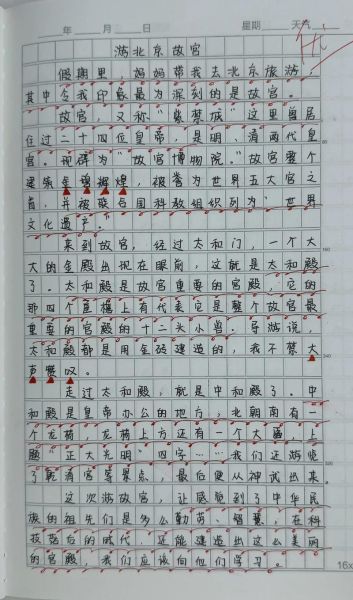 年 月 日 星期 天气
优
游北京故宫
假期里,妈妈带我去北京旅游,
其中令我印象最为深刻的是故宫。
故宫,又称"紫禁城"这里曾居
住过二十四位皇帝,是明、清两代皇
宫。现称为"故宫博物院。"故宫整个
建筑金碧辉煌,被誉为世界五大宫之
首,并被联合国科教组织列为"世界
文化遗产。"
来到故宫,经过太和门,一个大
大的金殿出现在眼前,这就是太和殿
了。太和殿是故宫重要的宫殿,它的
那四个角檐上有代表它是整个故宫最
重要的宫殿的十二头小兽。导游说,
太和殿都是用金砖建造的,我不禁大
声赞叹。
走过太和殿,就是中和殿了。中
和殿是皇帝办公的地方,北朝南有一
个龙椅,龙椅上方还有一个大匾,
题"正大光明"四字……我们还游览
了乾清宫等景点,最后便从神武出来
这次游故宫,让感觉到了中华民
族的祖先们是多么勤劳、智慧,在科
技落后的时代,还能建造出这么美丽
的宫殿,我们应该向他们学习。